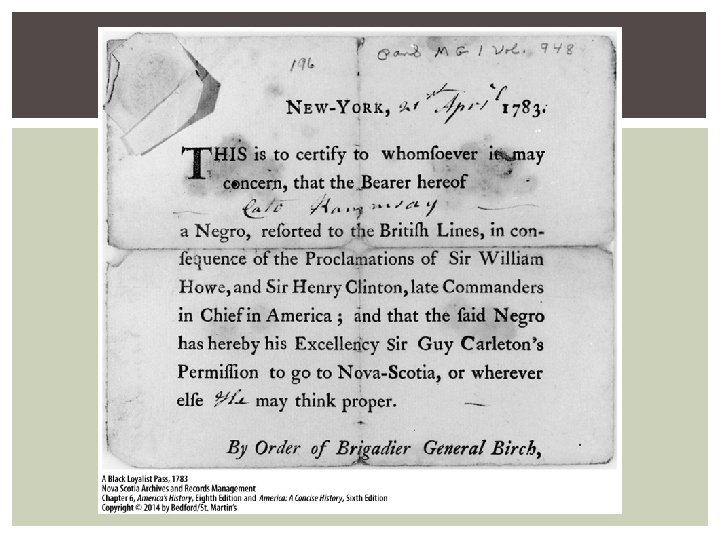 196 Cand MG 1 Vol. 948
NEW-YORK, 21st April 1783.
THIS is to certify to whomſoever it may
concern, that the Bearer hereof
Cato Ramsay
a Negro, reſorted to the Britiſh Lines, in con-
ſequence of the Proclamations of Sir William
Howe, and Sir Henry Clinton, late Commanders
in Chief in America; and that the ſaid Negro
has hereby his Excellency Sir Guy Carleton's
Permiſſion to go to Nova-Scotia, or wherever
elſe He may think proper.
By Order of Brigadier General Birch,
A Black Loyalist Pass, 1783
Nova Scotia Archives and Records Management
Chapter 6, America's History, Eighth Edition and America: A Concise History, Sixth Edition
Copyright © 2014 by Bedford/St. Martin's